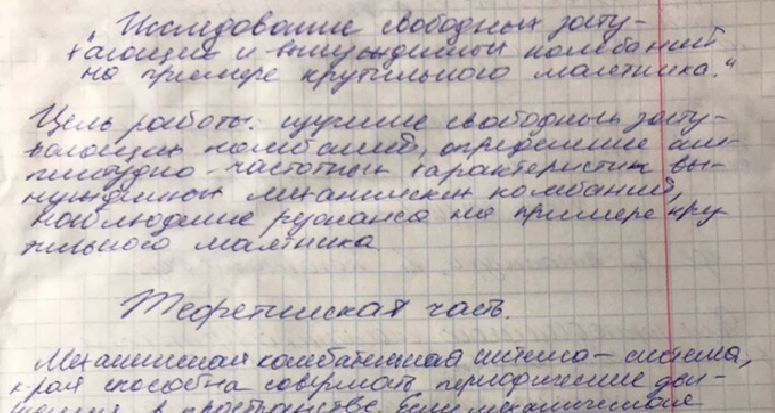 „Исследование свободных зату-
хающих и вынужденных колебаний
на примере крутильного маятника."
Цель работы: изучение свободных зату-
хающих колебаний, определение ам-
плитудно-частотных характеристик вы-
нужденных механических колебаний,
наблюдение резонанса на примере кру
тильного маятника.
Теоретическая часть.
Механическая колебательная система – система,
к-рая способна совершать периодические дви-
жения в пространстве. Если механические